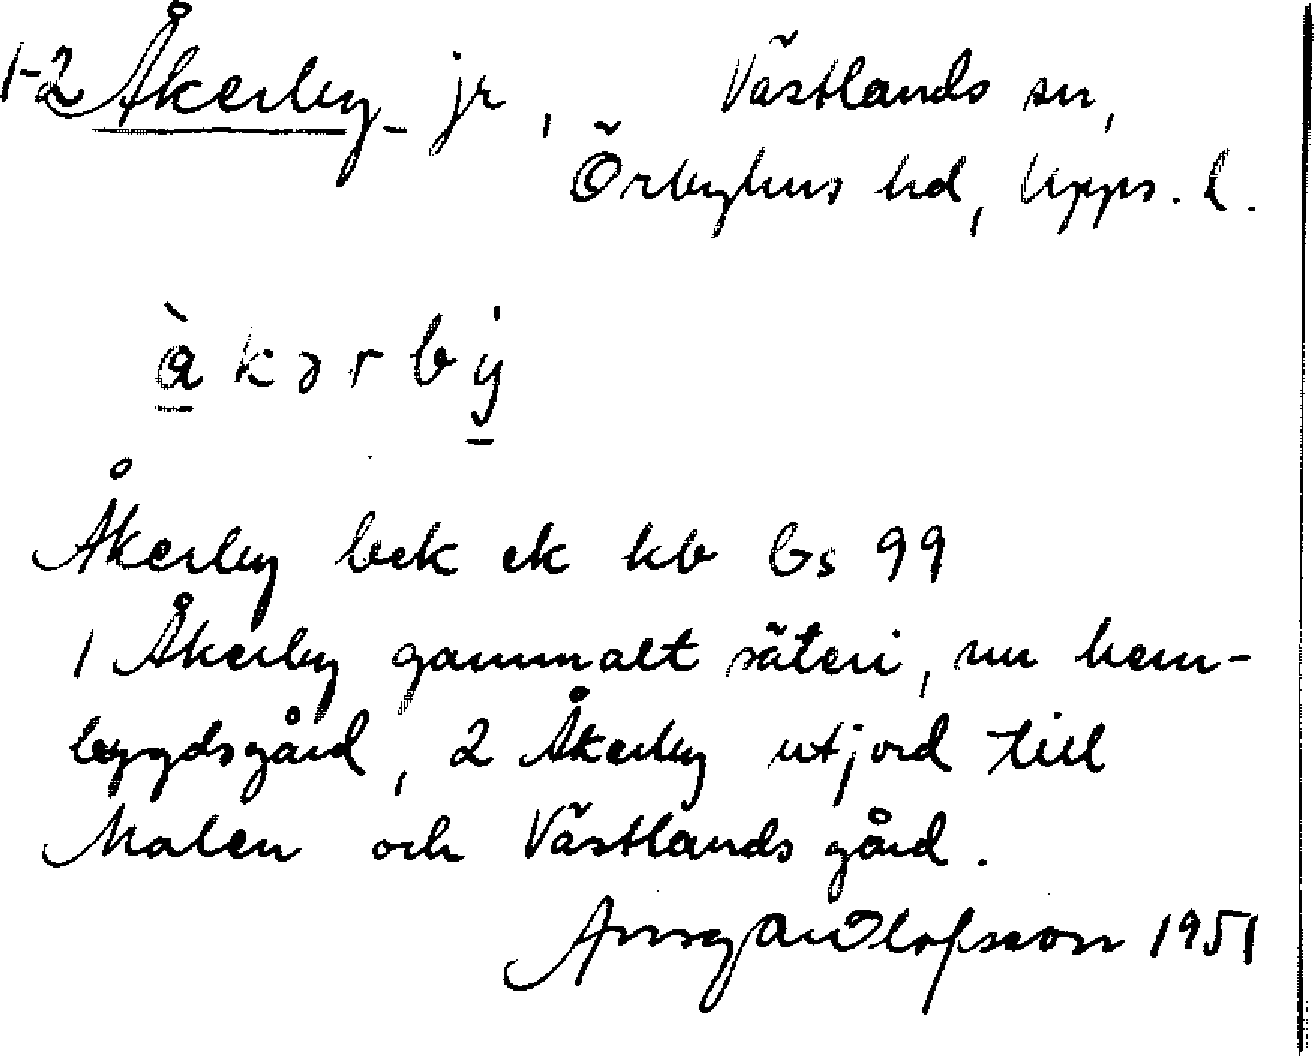 1-2 Åkerby jr, Västlands sn,
Örbyhus hd, Upps. l.
àkərbý
Åkerby bek ek kb Gs 99
1 Åkerby gammalt säteri, nu hem-
bygdsgård, 2 Åkerby utjord till
Malen och Västlands gård.
Olofsson 1951